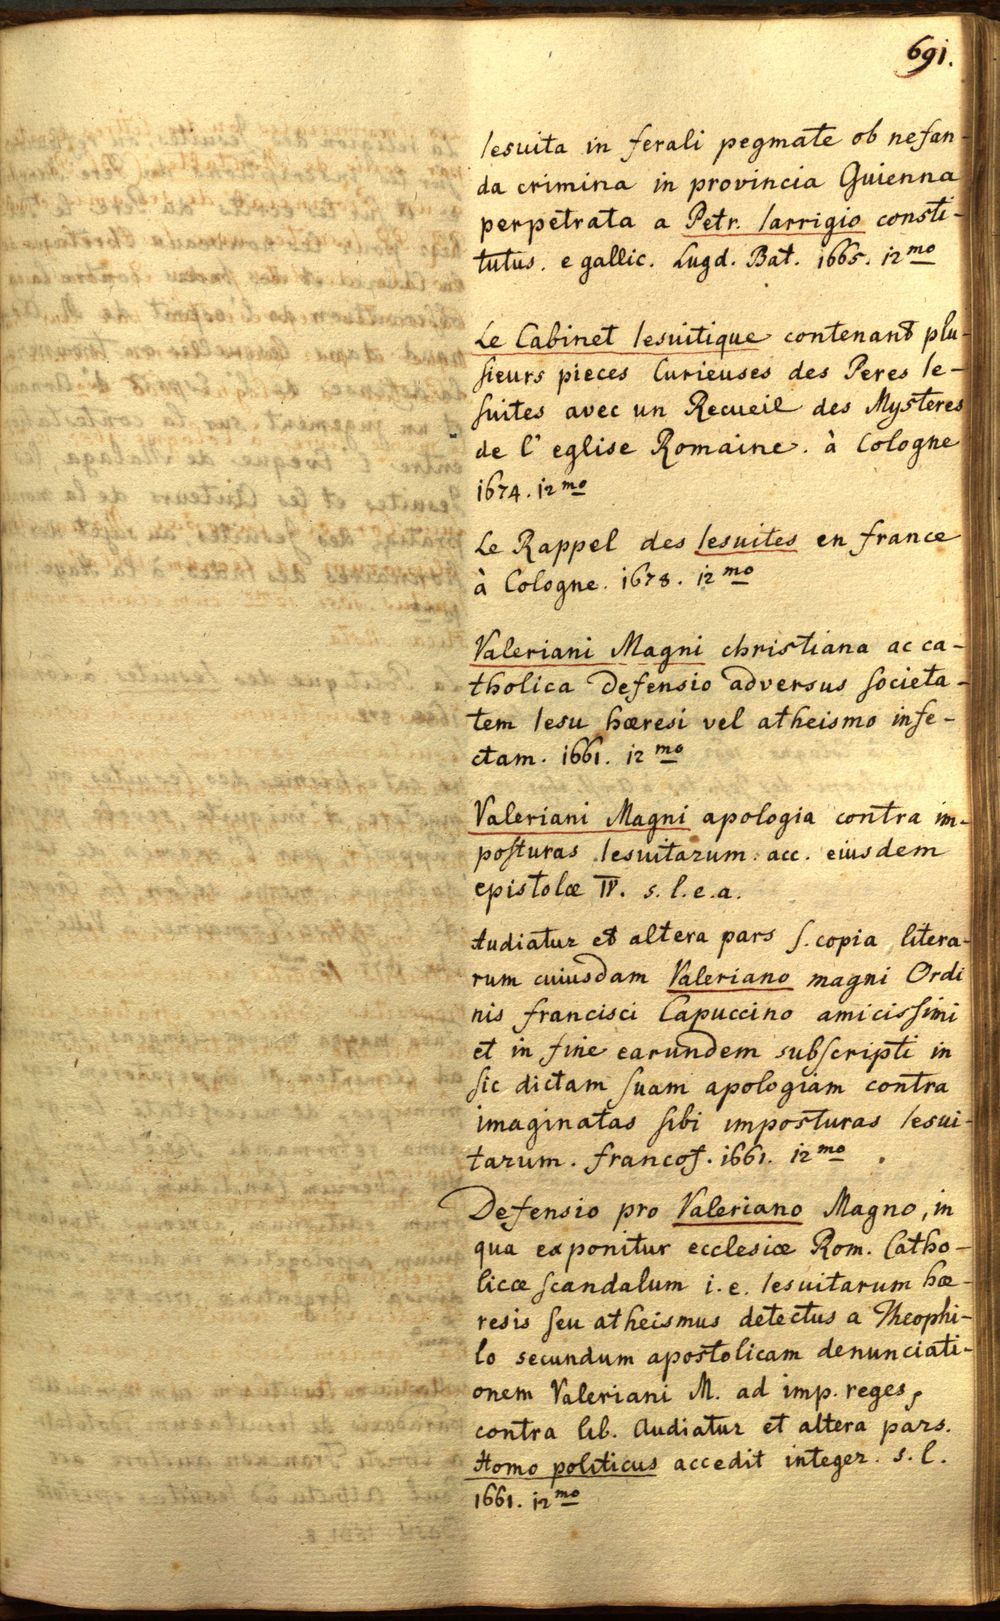 691.
Iesuita in ferali pegmate ob nefan-
da crimina in provincia Guienna
perpetrata a Petr. Iarrigio consti-
tutus. e gallic. Lugd. Bat. 1665. 12mo
Le Cabinet Iesuitique contenant plu-
sieurs pieces Curieuses des Peres Ie-
suites avec un Recueil des Mysteres
de l' eglise Romaine. à Cologne
1674. 12mo
Le Rappel des Iesuites en france
à Cologne. 1678. 12mo
Valeriani Magni christiana ac ca-
tholica Defensio adversus societa-
tem Iesu hæresi vel atheismo infe-
ctam. 1661. 12mo
Valeriani Magni apologia contra im-
posturas Iesuitarum. acc. eiusdem
epistolæ IV. s. l. e. a.
Audiatur et altera pars s. copia litera-
rum cuiusdam Valeriano magni Ordi
nis francisci Capuccino amicissimi
et in fine earundem subscripti in
sic dictam suam apologiam contra
imaginatas sibi imposturas Iesui-
tarum. francof. 1661. 12mo
Defensio pro Valeriano Magno, in
qua exponitur ecclesiæ Rom. Catho-
licæ scandalum i. e. Iesuitarum hæ-
resis seu atheismus detectus a Theophi-
lo secundum apostolicam denunciati-
onem Valeriani M. ad imp. reges,
contra lib. Audiatur et altera pars.
Homo politicus accedit integer. s. l.
1661. 12mo